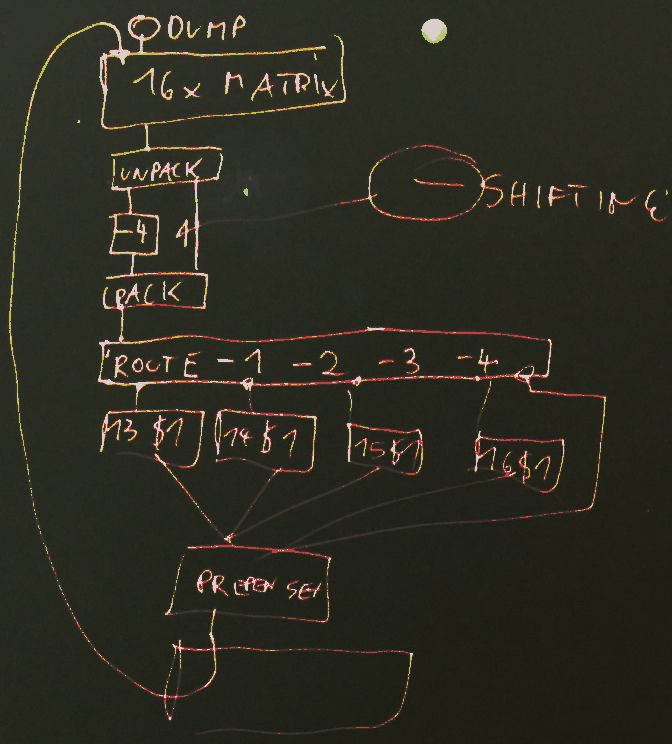 DUMP
16x MATRIX
UNPACK
-4 4
SHIFTING
PACK
ROUTE -1 -2 -3 -4
13 $1 14 $1 15 $1 16 $1
PREPEN SET